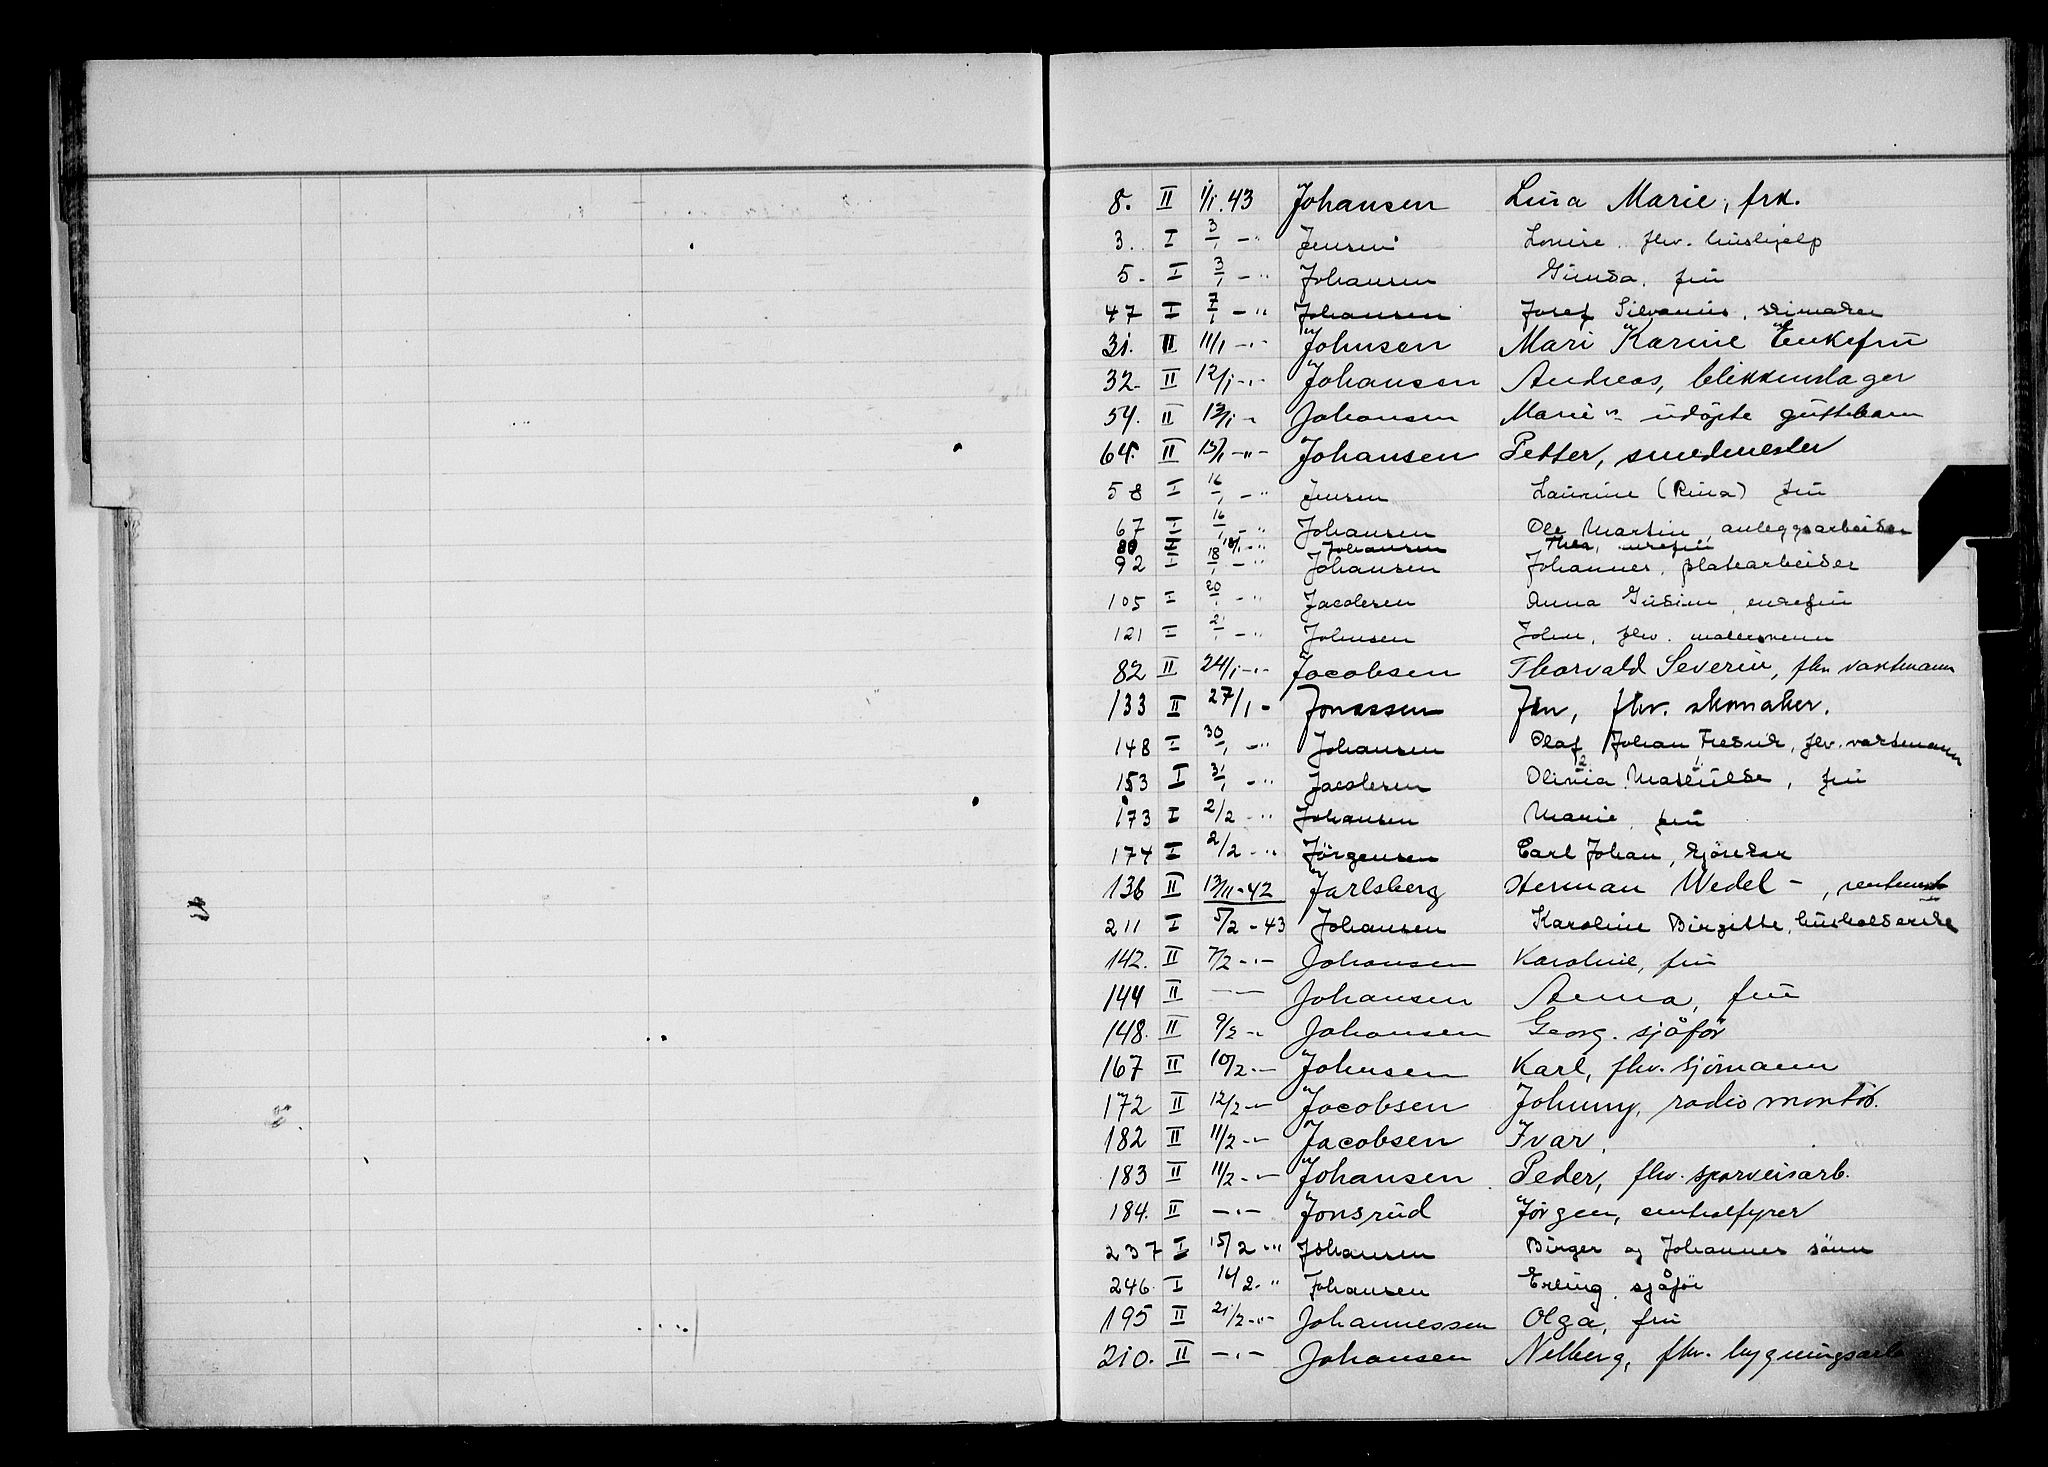 8. II 1/1. 43 Johansen Lina Marie, frk.
3. I 3/1 -" Jensen Louise. fhv. hushjelp
5. I 3/1 -" Johansen Gunda, fru
47 I 7/1 -" Johansen Josef Silvanus, skimaker
31. II 11/1 -"- Johnsen Mari Karine Enkefru
32. II 12/1 -"- Johansen Andreas, blikkenslager
54. II 13/1 - Johansen Marie's udøpte guttebarn
64. II 15/1 -"- Johansen Petter, smedmester
58 I 16/1 -" Jensen Laurine (Rina) fru
67 I 16/1 -" Johansen Ole Martin, anleggsarbeider
80 I 18/1 -" Johansen Thea, enkefru
92 I 18/1 -" Johansen Johannes, platearbeider
105 I 20/1 -" Jacobsen Anna Gusion, enkefru
121 I 21/1 -" Johnsen John, fhv. malersvenn
82 II 24/1 -"- Jacobsen Thorvald Severin, fhv vaktmann
133 II 27/1 - Jonassen Jon, fhv. skomaker.
148 I 30/1 -" Johansen Olaf Johan Fredrik, fhv. vaktmann
153 I 31/1 -" Jacobsen Olivia Mathilde, fru
173 I 2/2 -" Johansen Marie, fru
174 I 2/2 -" Jörgensen Carl Johan, gjörtler
136 II 13/11-42 Jarlsberg Herman Wedel -, rentenist
211 I 5/2 - 43 Johansen Karoline Birgitte, husholderske
142. II 7/2 -"- Johansen Karoline, fru
144 II -"- Johansen Anna, fru
148. II 9/2 -" Johansen Georg. sjåfør
167 II 10/2 -"- Johnsen Karl, fhv. sjømann
172 II 12/2 -"- Jacobsen Johnny, radio montør.
182 II 11/2 -"- Jacobsen Ivar.
183 II 11/2 -"- Johansen Peder, fhv. sporveisarb.
184. II -"- Jonsrud Jørgen, centralfyrer
237 I 15/2 -" Johansen Birger og Johannes sönn
246. I 16/2 -" Johansen Erling. sjåför
195 II 21/2 -"- Johannessen Olga, fru
210. II -"- Johansen Nelberg, fhv. bygningsarb